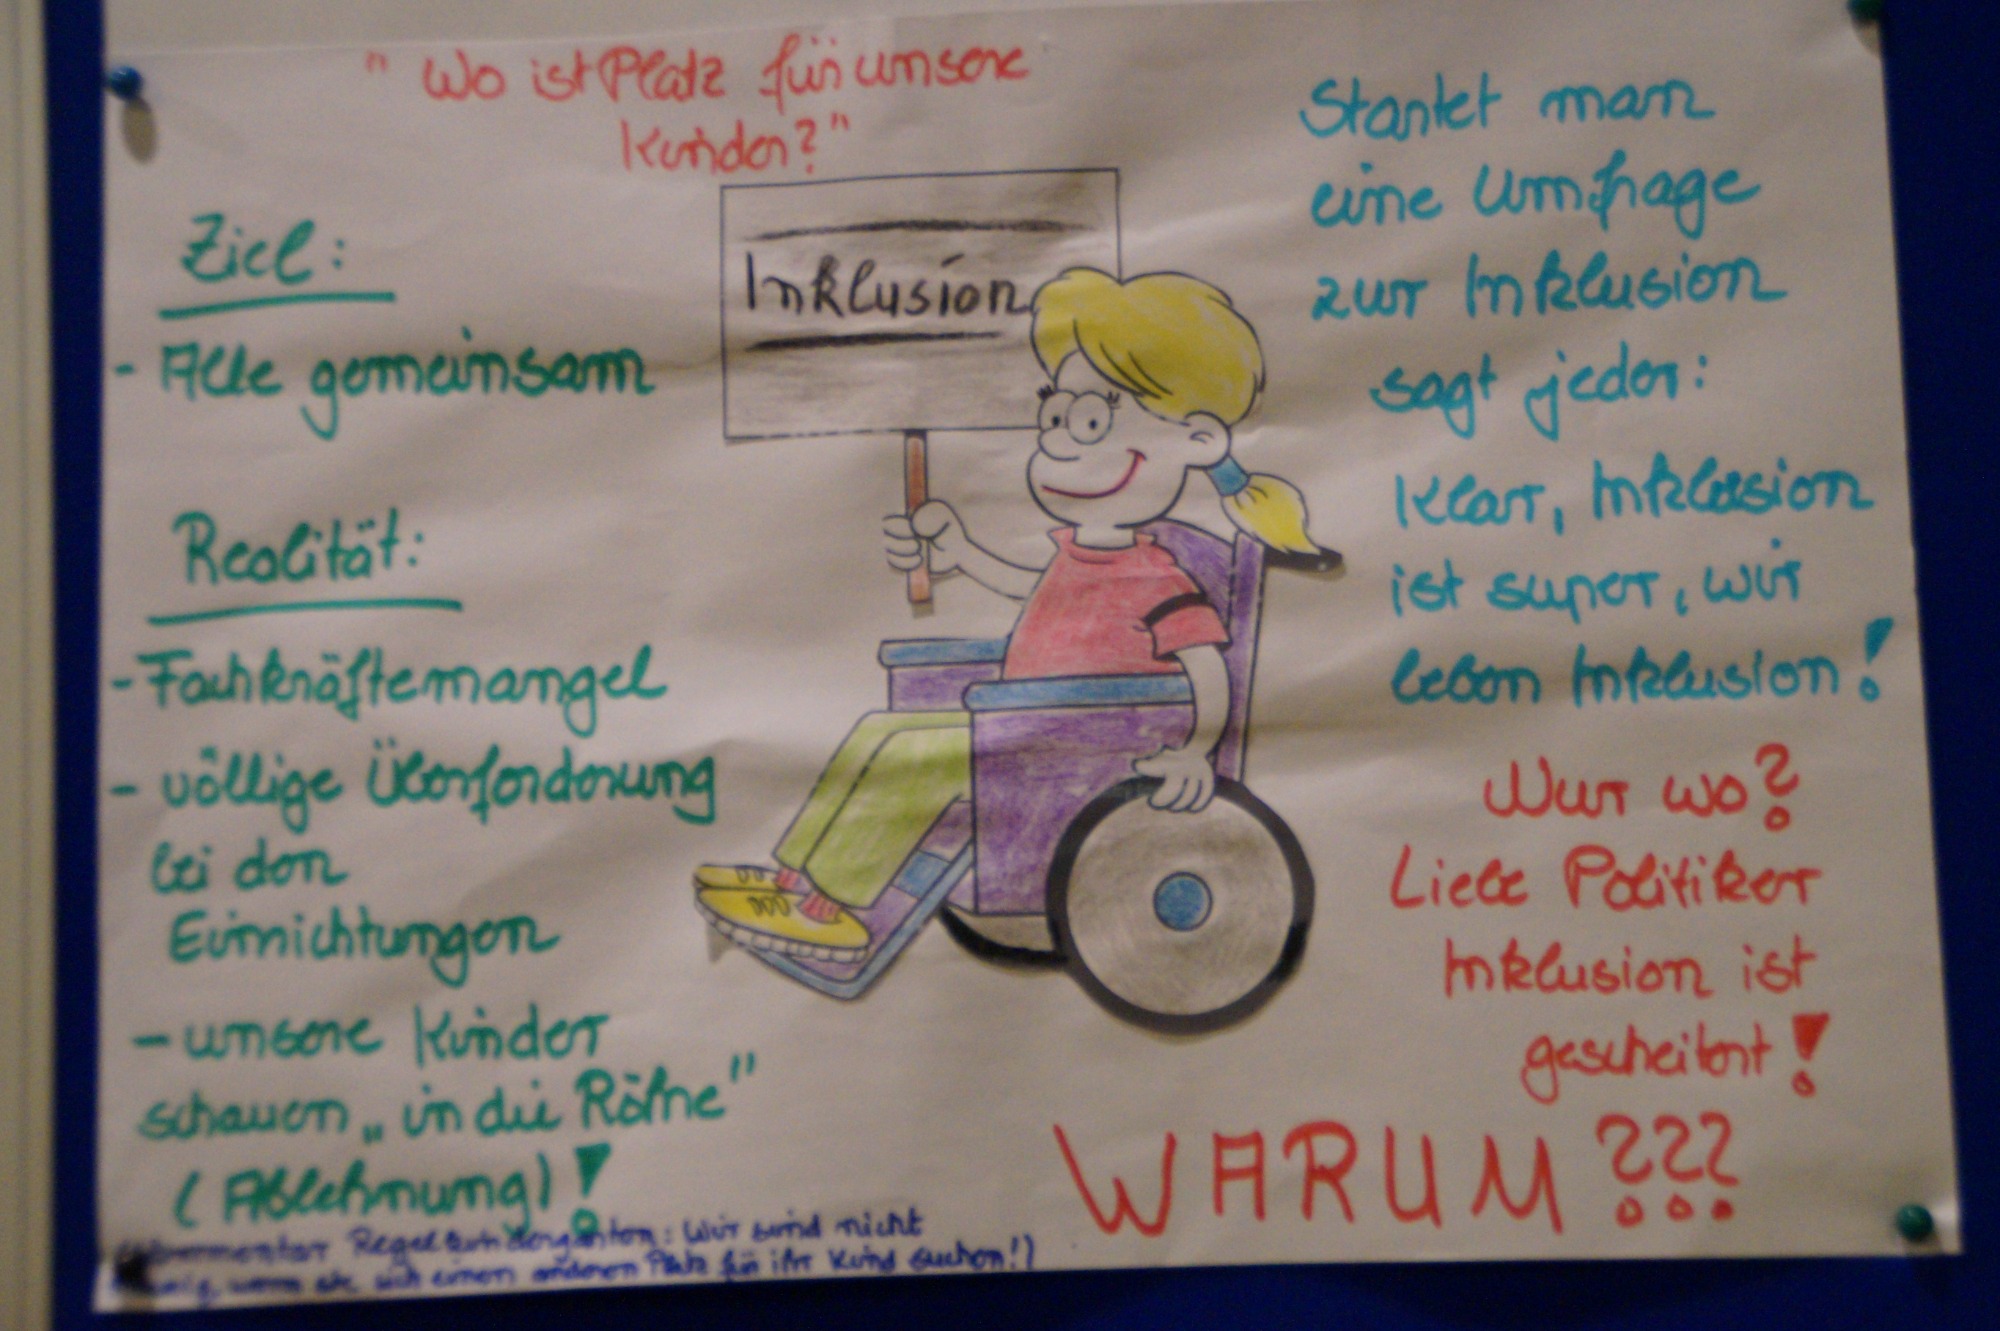 " Wo ist Platz für unsere
Kinder? "
Ziel:
- Alle gemeinsam
Realität:
- Fachkräftemangel
- völlige Überforderung
bei den
Einrichtungen
- unsere Kinder
schauen „in die Röhre"
(Ablehnung)!
Regelkindergarten: Wir sind nicht
wenn sie sich einen anderen Platz für ihr Kind suchen!)
Inklusion
Startet man
eine Umfrage
zur Inklusion
sagt jeder:
Klar, Inklusion
ist super, wir
leben Inklusion!
Nur wo?
Liebe Politiker
Inklusion ist
gescheitert!
WARUM???